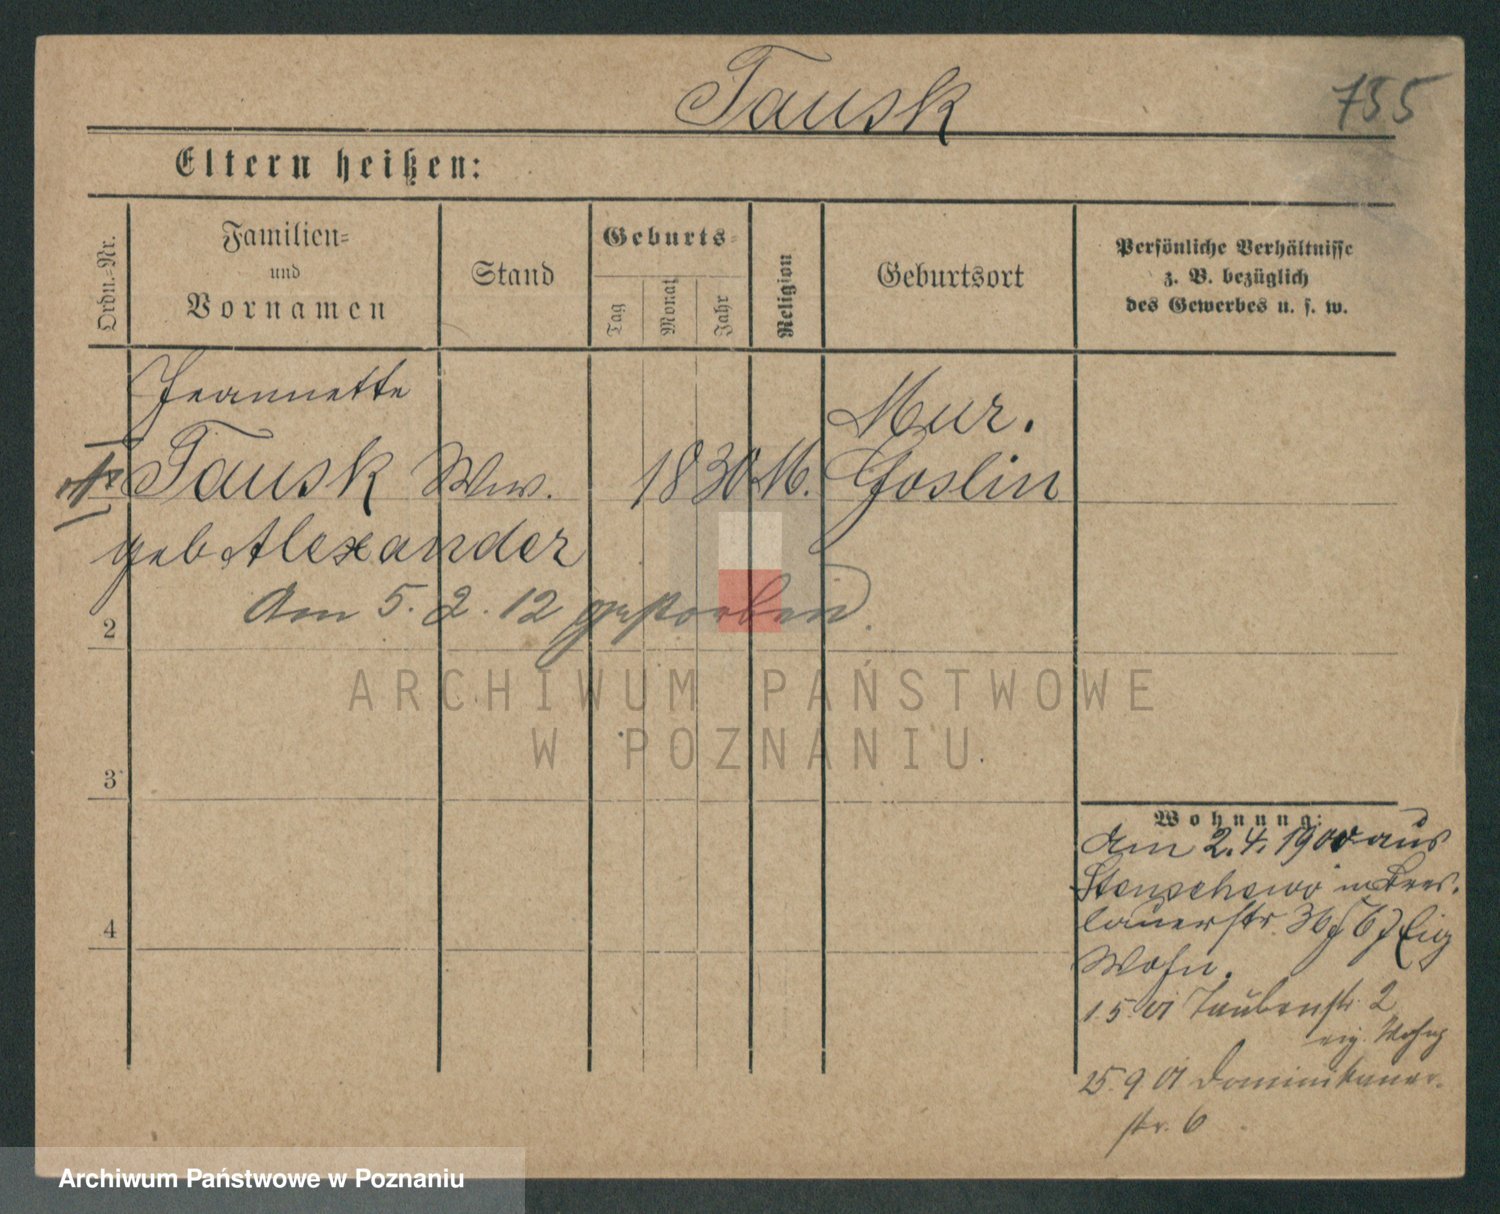 Tausk
755
Eltern heißen:
Ordn.-Nr.
Familien-
und
Vornamen
Stand
Geburts-
Tag
Monat
Jahr
Religion
Geburtsort
Persönliche Verhältnisse
z. B. bezüglich
des Gewerbes u. s. w.
Jeannette
Tausk Ww. 1830 M. Mur.
Goslin
geb Alexander
Am 5. 2. 12 gestorben.
2
ARCHIWUM PAŃSTWOWE
W POZNANIU
3
4
Wohnung:
Am 2.4.1900 aus
Stenschewo n Bres-
lauerstr. 36 Eig
Wohn.
1.5.01 Taubenstr. 2
eig. Wohng
25.9 01 Dominikaner-
str. 6
Archiwum Państwowe w Poznaniu